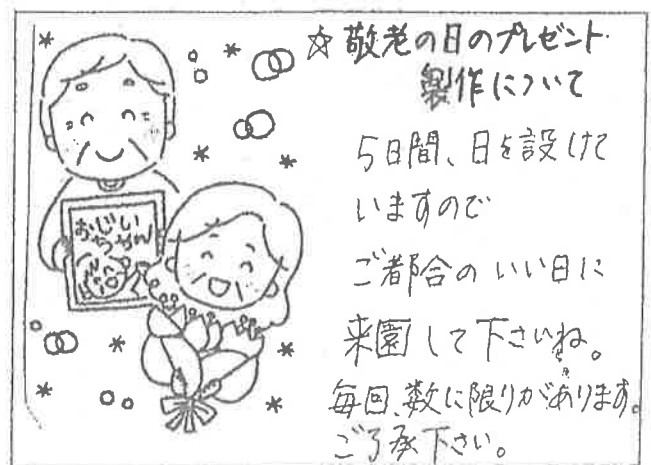 ☆敬老の日のプレゼント
製作について
5日間、日を設けて
いますので
ご都合のいい日に
来園して下さいね。
毎回、数に限りがあります。
ご了承下さい。
おじい
ちゃん